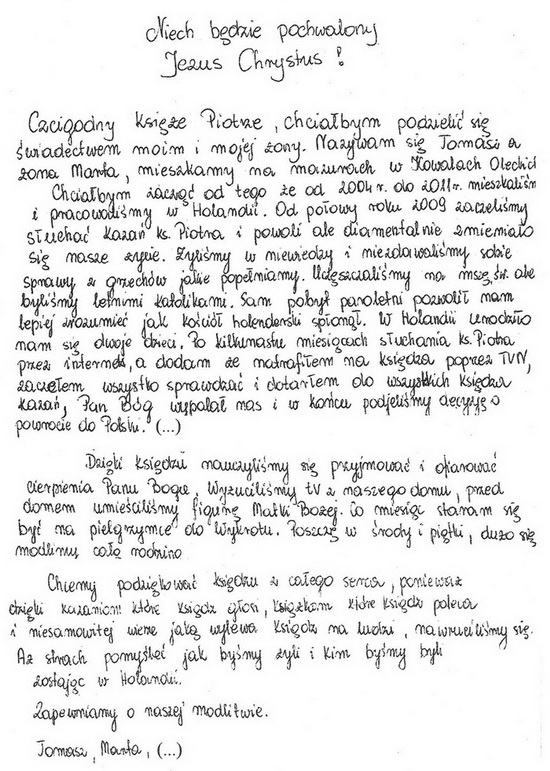 Niech będzie pochwalony
Jezus Chrystus!
Czcigodny Księże Piotrze, chciałbym podzielić się
świadectwem moim i mojej żony. Nazywam się Tomasz a
żona Marta, mieszkamy na mazurach w Kowalach Oleckich
Chciałbym zacząć od tego że od 2004r. do 2011r. mieszkaliśm
i pracowaliśmy w Holandii. Od połowy roku 2009 zaczeliśmy
słuchać kazań ks. Piotra i powoli ale diamentalnie zmieniało
się nasze życie. Żyliśmy w niewiedzy i niezdawaliśmy sobie
sprawy z grzechów jakie popełniamy. Uczęszczaliśmy na mszę św. ale
byliśmy letnimi katolikami. Sam pobyt paroletni pozwolił nam
lepiej zrozumieć jak kościół holenderski spłonął. W Holandii urodziło
nam się dwoje dzieci. Po kilkunastu miesiącach słuchania ks. Piotra
przez internet, a dodam że natrafiłem na księdza poprzez TVN,
zacząłem wszystko sprawdzać i dotarłem do wszystkich księdza
kazań, Pan Bóg wypalał nas i w końcu podjeliśmy decyzję o
powrocie do Polski. (...)
Dzięki księdzu nauczyliśmy się przyjmować i ofiarować
cierpienia Panu Bogu, Wyzuciliśmy tv z naszego domu, przed
domem umieściliśmy figurę Matki Bożej. Co miesiąc staram się
być na pielgrzymce do Wykrotu. Poszczę w środy i piątki, dużo się
modlimy całą rodziną
Chcemy podziękować księdzu z całego serca, ponieważ
dzięki kazaniom które ksiądz głosi, książkom które ksiądz poleca
i niesamowitej wierze jaką wylewa ksiądz na ludzi, nawruciliśmy się.
Aż strach pomyśleć jak byśmy żyli i kim byśmy byli
zostając w Holandii.
Zapewniamy o naszej modlitwie.
Tomasz, Marta, (...)